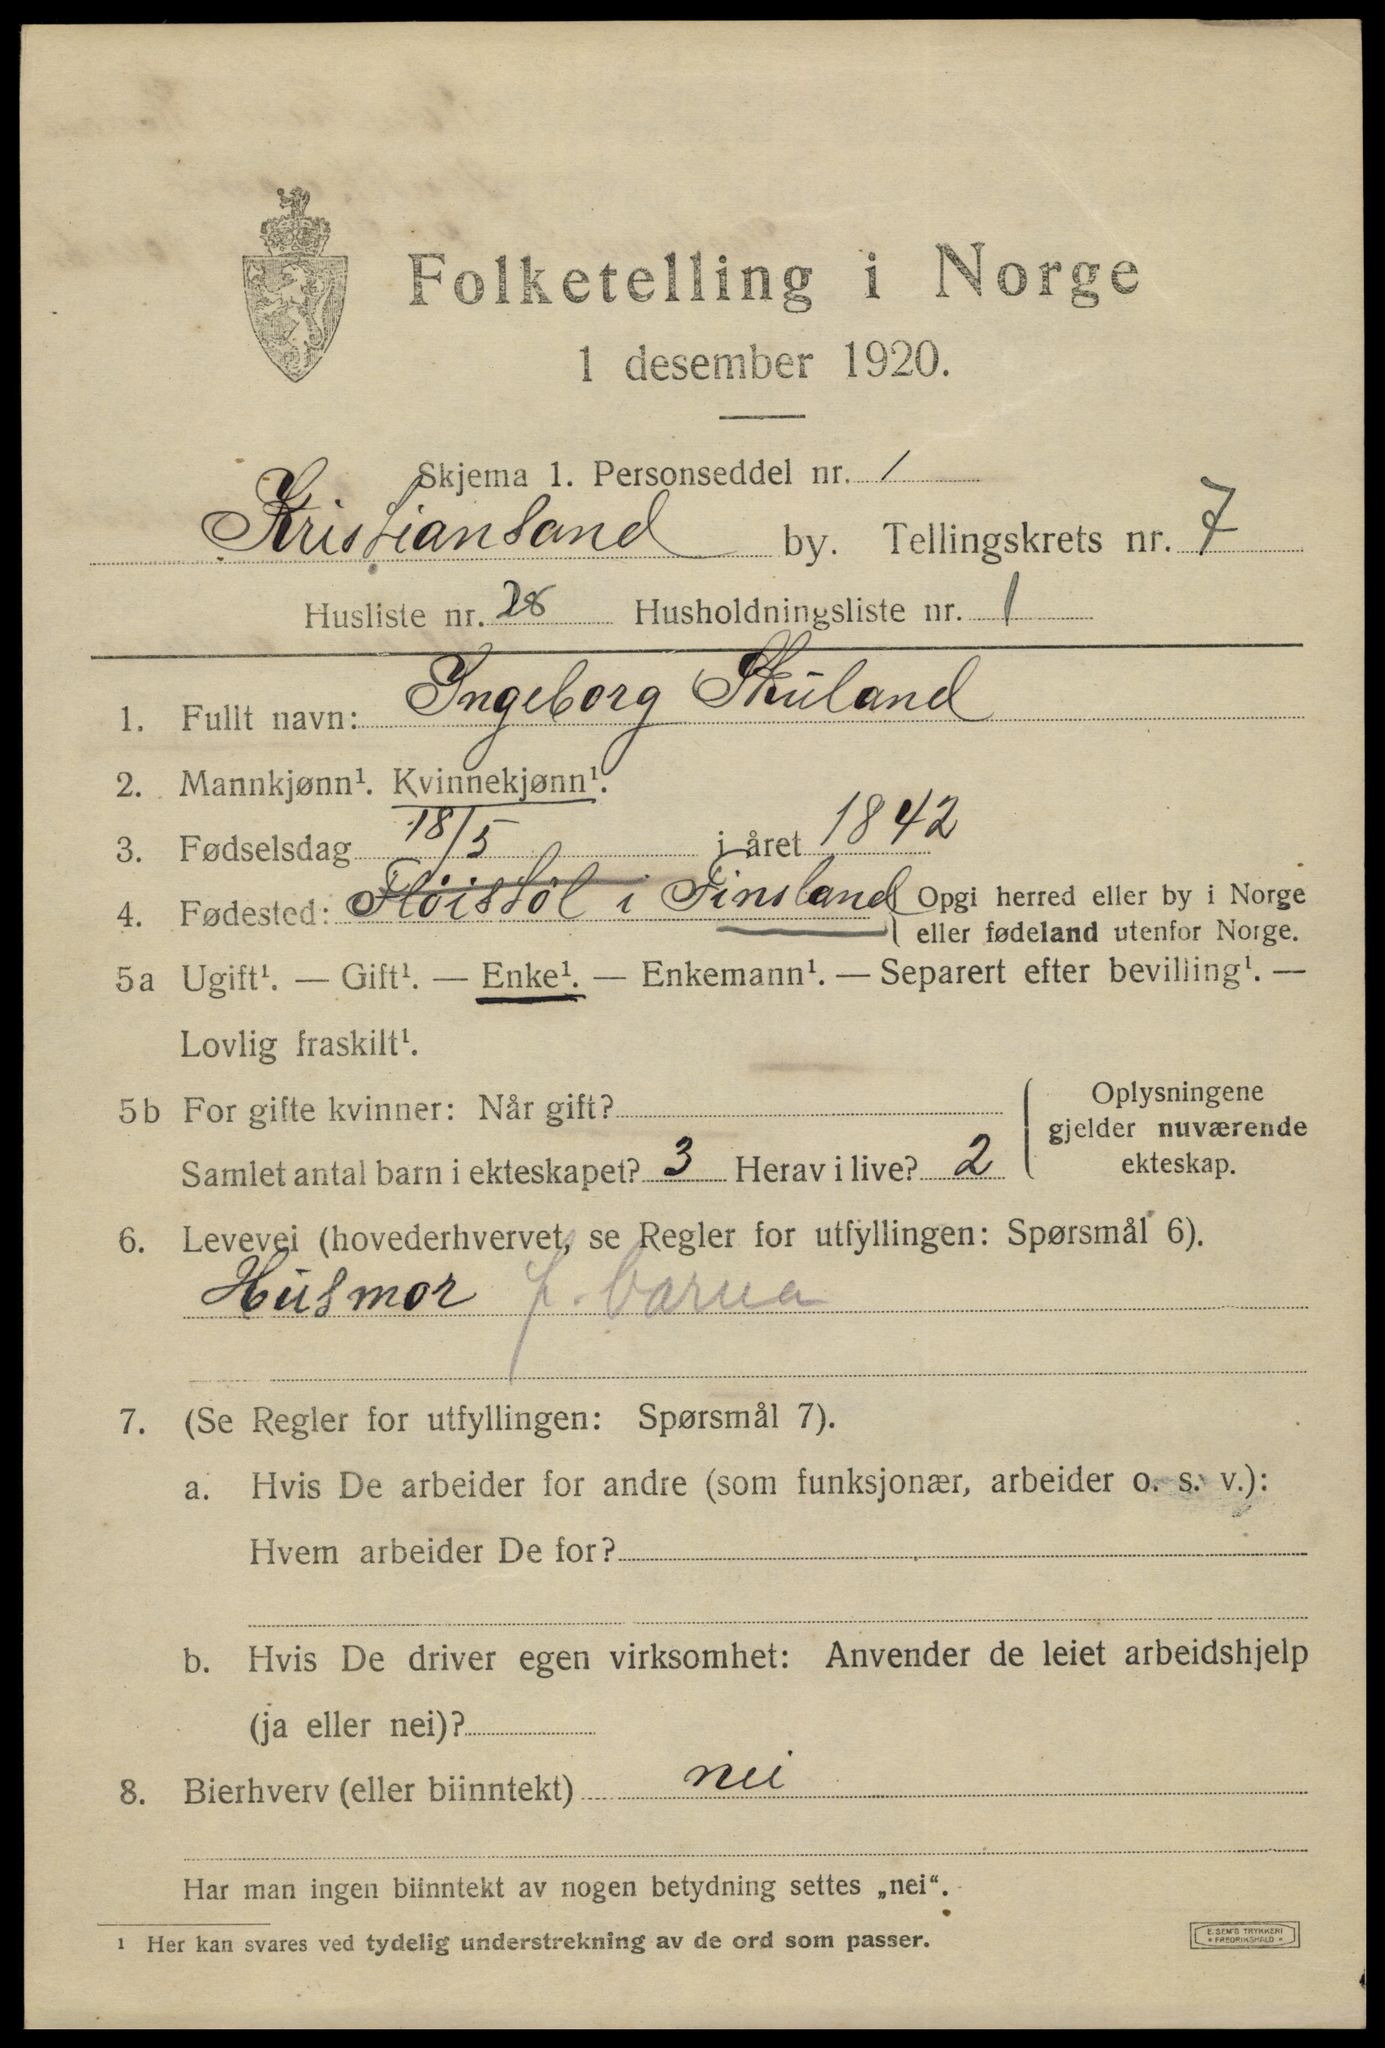 Folketelling i Norge
1 desember 1920.
Skjema 1. Personseddel nr. 1
Kristiansand by. Tellingskrets nr. 7
Husliste nr. 28 Husholdningsliste nr. 1
1. Fullt navn: Ingeborg Skuland
2. Mannkjønn¹. Kvinnekjønn¹.
3. Fødselsdag 18/5 i året 1842
4. Fødested: Fløistøl i Finsland { Opgi herred eller by i Norge
eller fødeland utenfor Norge.
5a Ugift¹. — Gift¹. — Enke¹. — Enkemann¹. — Separert efter bevilling¹. —
Lovlig fraskilt¹.
5b For gifte kvinner: Når gift?
Samlet antal barn i ekteskapet? 3 Herav i live? 2
Oplysningene
gjelder nuværende
ekteskap.
6. Levevei (hovederhvervet, se Regler for utfyllingen: Spørsmål 6).
Husmor f. barna
7. (Se Regler for utfyllingen: Spørsmål 7).
a. Hvis De arbeider for andre (som funksjonær, arbeider o. s. v.):
Hvem arbeider De for?
b. Hvis De driver egen virksomhet: Anvender de leiet arbeidshjelp
(ja eller nei)?
8. Bierhverv (eller biinntekt) nei
Har man ingen biinntekt av nogen betydning settes „nei“.
¹ Her kan svares ved tydelig understrekning av de ord som passer.
E. SEM'S TRYKKERI
* FREDRIKSHALD *